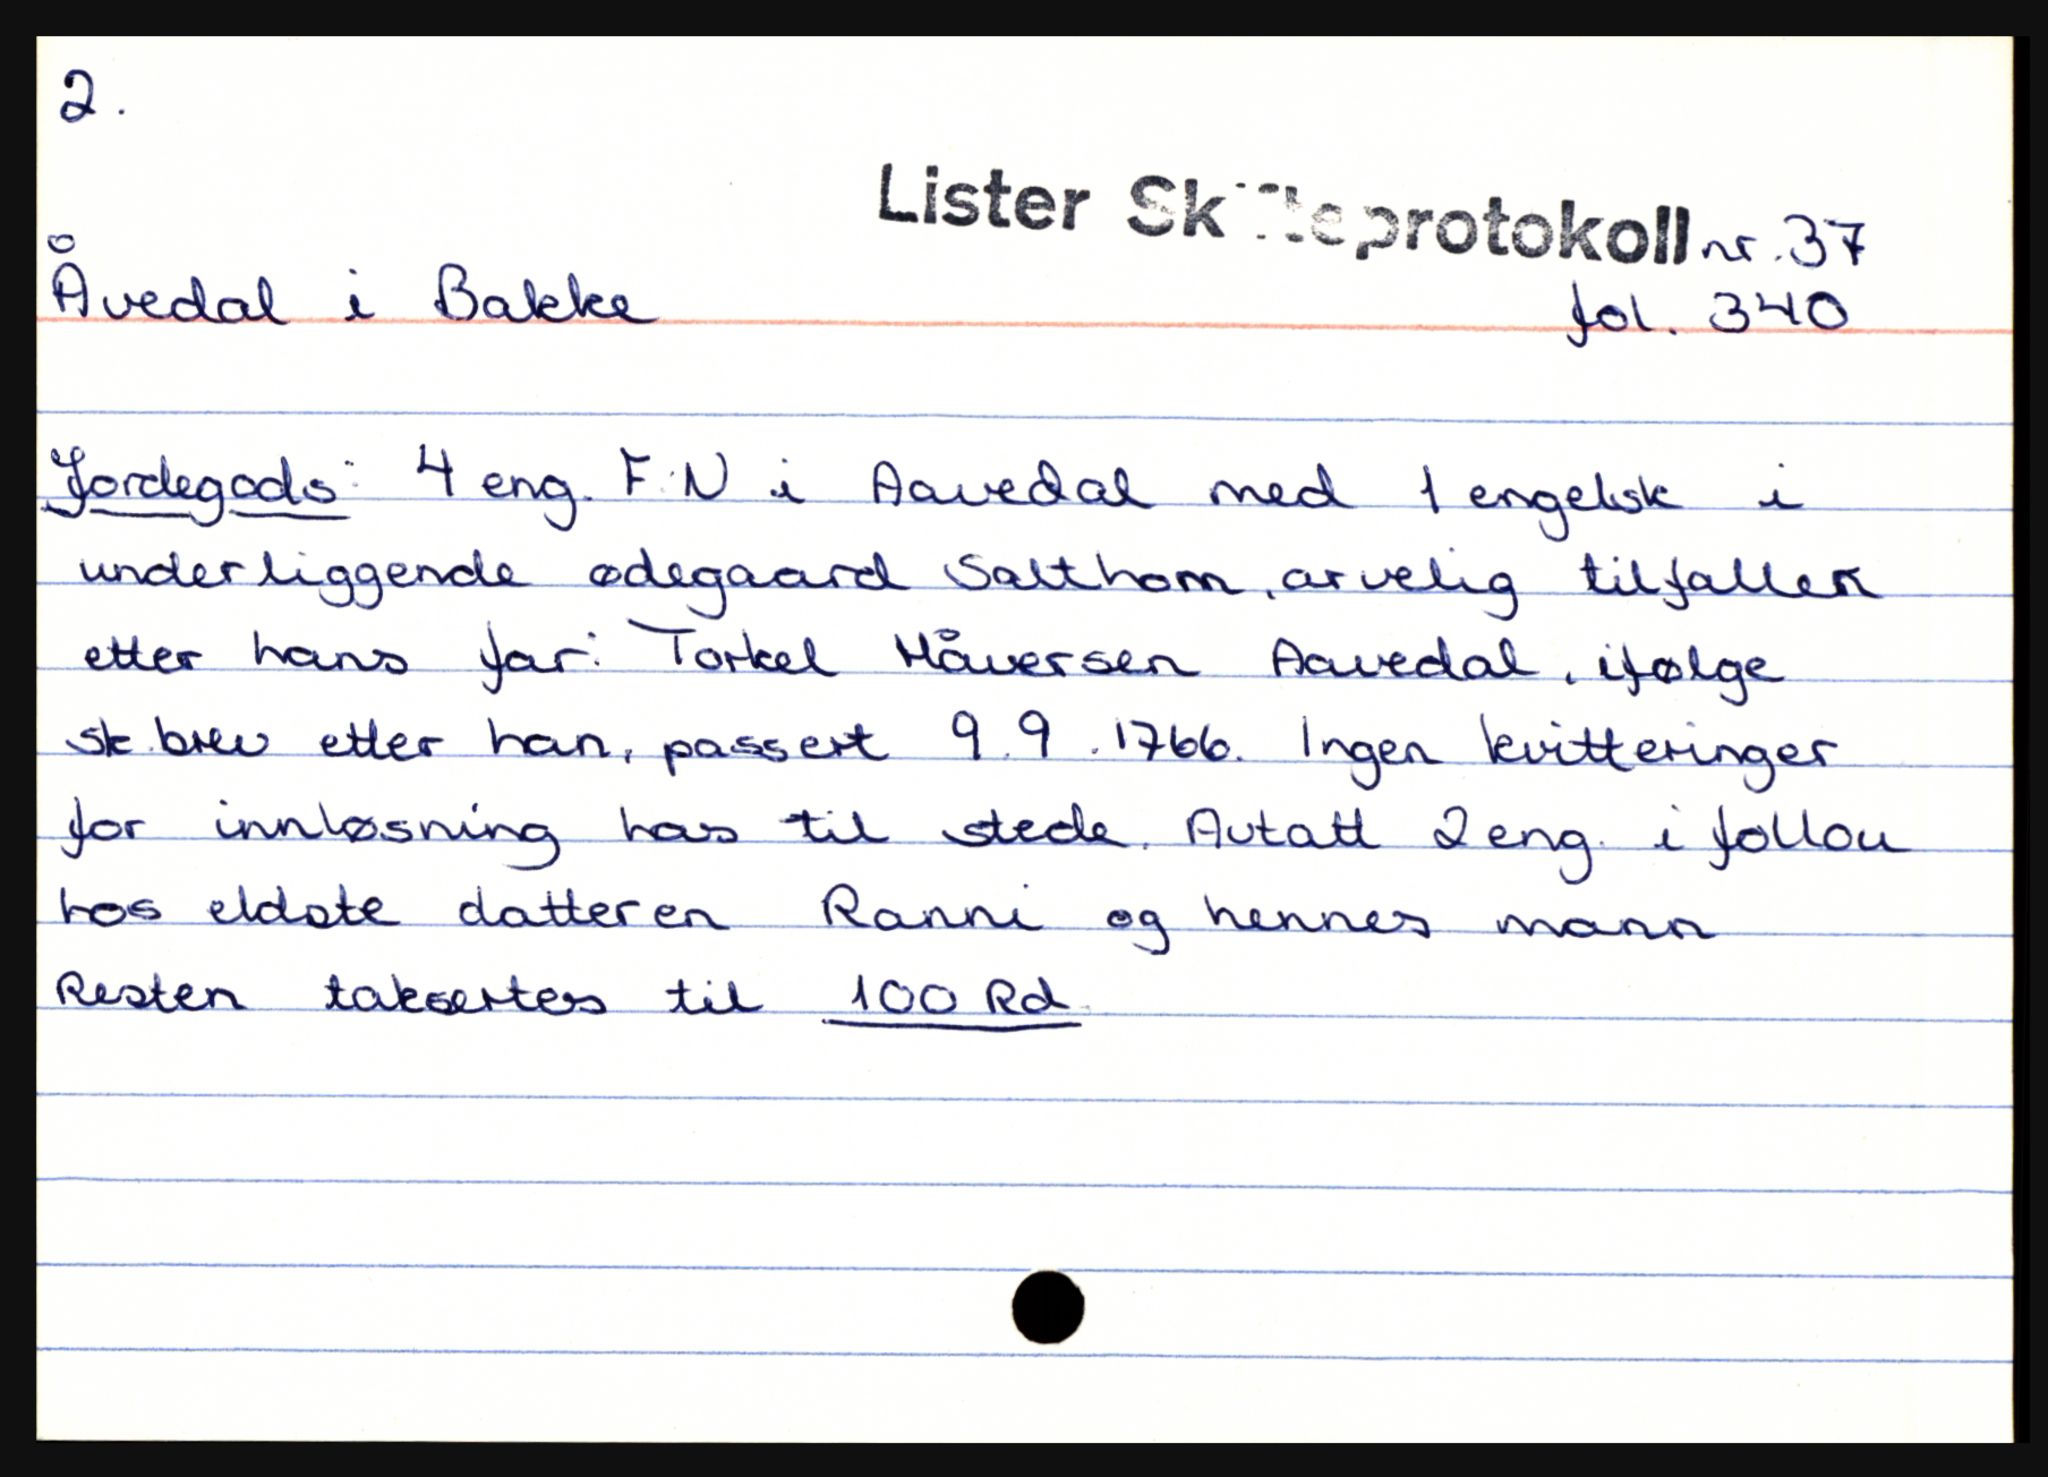 2.
Lister Skifteprotokoll nr. 37
Åvedal i Bakke
fol. 340
Jordegods: 4 eng. F.N i Aavedal med 1 engelsk i
underliggende ødegaard Salthom, arvelig tilfallen
etter hans far: Torkel Håversen Aavedal, ifølge
sk.brev etter han, passert 9.9.1766. Ingen kvitteringer
for innløsning has til stede. Avtatt 2 eng. i follou
hos eldste datteren Ranni og hennes mann
Resten taksertes til 100 Rd.